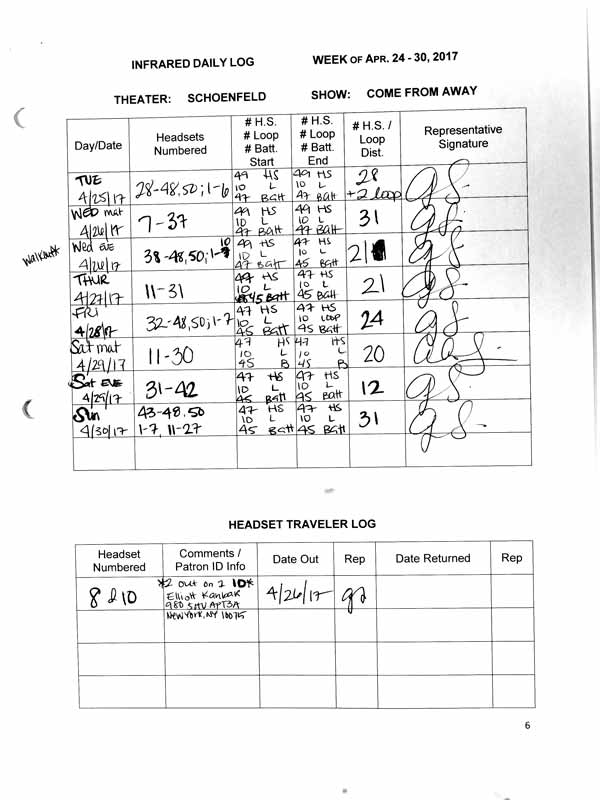 INFRARED DAILY LOG WEEK OF APR. 24 - 30, 2017
THEATER: SCHOENFELD SHOW: COME FROM AWAY
Day/Date Headsets Numbered # H.S. # Loop # Batt. Start # H.S. # Loop # Batt. End # H.S. / Loop Dist. Representative Signature
TUE 4/25/17 28-48,50; 1-6 49 HS 10 L 47 Batt 49 HS 10 L 47 Batt 28 +2 loop
WED mat 4/26/17 7-37 49 HS 10 L 47 Batt 49 HS 10 L 47 Batt 31
Walkout
Wed EVE 4/26/17 38-48,50; 1- 10 49 HS 10 L 47 Batt 47 HS 10 L 45 Batt 21
THUR 4/27/17 11-31 47 HS 10 L 45 Batt 47 HS 10 L 45 Batt 21
FRI 4/28/17 32-48,50; 1-7 47 HS 10 L 45 Batt 47 HS 10 LOOP 45 Batt 24
Sat mat 4/29/17 11-30 47 HS 10 L 45 B 47 HS 10 L 45 B 20
Sat EVE 4/29/17 31-42 47 HS 10 L 45 Batt 47 HS 10 L 45 Batt 12
Sun 4/30/17 43-48, 50 1-7, 11-27 47 HS 10 L 45 Batt 47 HS 10 L 45 Batt 31
HEADSET TRAVELER LOG
Headset Numbered Comments / Patron ID Info Date Out Rep Date Returned Rep
8 & 10 *2 out on 1 ID* 4/26/17 gs
Elliott
APT3A
NEW YORK, NY 10075
6